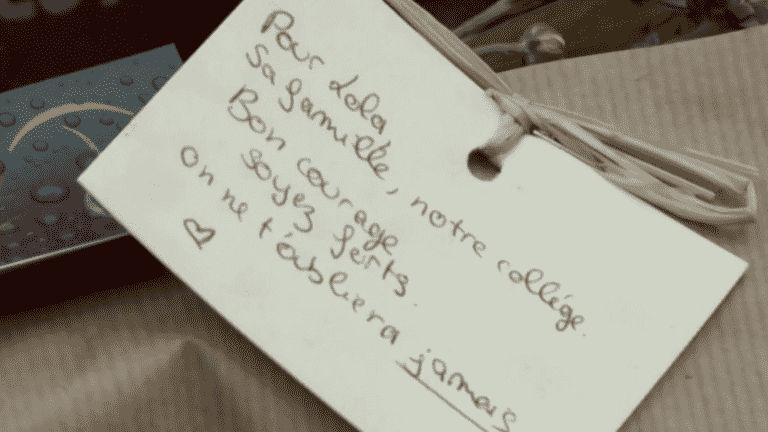 Pour Lola
Sa famille, notre collége.
Bon courage
soyez forts.
on ne t'oubliera jamais
♡